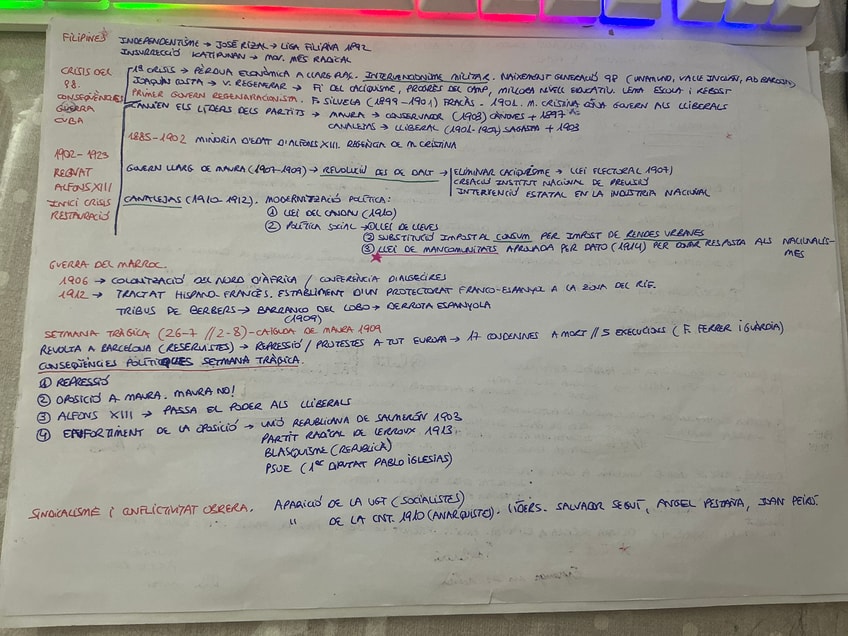 FILIPINES INDEPENDENTISME → JOSE RIZAL → LIGA FILIPINA 1892
INSURRECCIÓ KATIPUNAN → MOV. MÉS RADICAL
CRISIS DEL 98. CONSEQÜÈNCIES GUERRA CUBA
1ª CRISIS → PÈRDUA ECONÒMICA A LLARG PLAÇ. INTERVENCIONISME MILITAR. NAIXEMENT GENERACIÓ 98 (UNAMUNO, VALLE INCLAN, PIO BAROJA)
JOAQUIN COSTA → V. REGENERAR → FI DEL CACIQUISME, PROGRÉS DEL CAMP, MILLORA NIVELL EDUCATIU. LEMA ESCOLA I REBOST
PRIMER GOVERN REGENERACIONISTA. F. SILVELA (1899-1901) FRACÀS - 1901. M. CRISTINA DÓNA GOVERN ALS LLIBERALS
CANVIEN ELS LÍDERS DELS PARTITS → MAURA → CONSERVADOR (1903) CÀNOVES + 1897
CANALEJAS → LLIBERAL SAGASTA + 1903
1885-1902 MINORIA D'EDAT D'ALFONS XIII. REGÈNCIA DE M. CRISTINA
1902-1923
REGNAT ALFONS XIII
INICI CRISIS RESTAURACIÓ
GOVERN LLARG DE MAURA (1907-1909) → REVOLUCIÓ DES DE DALT → ELIMINAR CACIQUISME → LLEI ELECTORAL 1907)
CREACIÓ INSTITUT NACIONAL DE PREVISIÓ
INTERVENCIÓ ESTATAL EN LA INDÚSTRIA NACIONAL
CANALEJAS (1910-1912). MODERNITZACIÓ POLÍTICA:
① LLEI DEL CANDAU (1910)
② POLÍTICA SOCIAL → ① LLEI DE LLEVES
② SUBSTITUCIÓ IMPOSTAL CONSUM PER IMPOST DE RENDES URBANES
③ LLEI DE MANCOMUNITATS APROVADA PER DATO (1914) PER DONAR RESPOSTA ALS NACIONALIS-
MES
GUERRA DEL MARROC.
1906 → COLONITZACIÓ DEL NORD D'ÀFRICA / CONFERÈNCIA D'ALGECIRES
1912 → TRACTAT HISPANO-FRANCÈS. ESTABLIMENT D'UN PROTECTORAT FRANCO-ESPANYOL A LA ZONA DEL RIF.
TRIBUS DE BERBERS → BARRANCO DEL LOBO → DERROTA ESPANYOLA
(1909)
SETMANA TRÀGICA (26-7 // 2-8) - CAIGUDA DE MAURA 1909
REVOLTA A BARCELONA (RESERVISTES) → REPRESSIÓ / PROTESTES A TOT EUROPA → 17 CONDEMNES A MORT // 5 EXECUCIONS (F. FERRER I GUÀRDIA)
CONSEQÜÈNCIES POLÍTIQUES SETMANA TRÀGICA.
① REPRESSIÓ
② OPOSICIÓ A MAURA. MAURA NO!
③ ALFONS XIII → PASSA EL PODER ALS LLIBERALS
④ ENFORTIMENT DE LA OPOSICIÓ → UNIÓ REPUBLICANA DE SALMERÓN 1903
PARTIT RADICAL DE LERROUX 1913
BLASQUISME (REPUBLICÀ)
PSOE (1er DIPUTAT PABLO IGLESIAS)
SINDICALISME I CONFLICTIVITAT OBRERA. APARICIÓ DE LA UGT (SOCIALISTES)
" DE LA CNT. 1910 (ANARQUISTES). LÍDERS. SALVADOR SEGUÍ, ANGEL PESTAÑA, JOAN PEIRÓ.